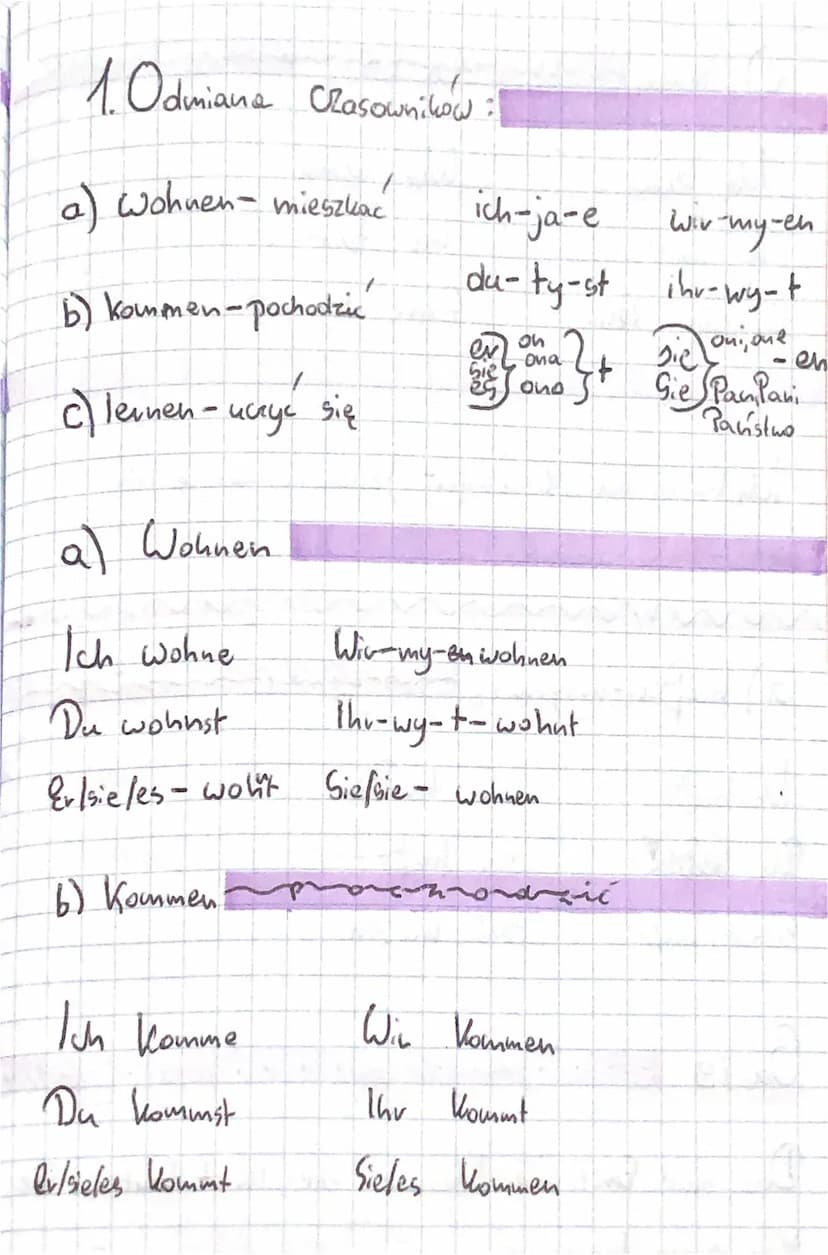 1. Odmiana czasowników:
a) wohnen - mieszkać
b) kommen - pochodzić
c) lernen - uczyć się
ich - ja - e
du - ty - st
er sie es } on ona ono } t
wir - my - en
ihr - wy - t
sie Sie } oni, one Pan, Pani Państwo - en
a) Wohnen
Ich wohne Wir - my - en wohnen
Du wohnst Ihr - wy - t - wohnt
Er/sie/es - wohnt Sie/sie - wohnen
b) Kommen
Ich komme Wir kommen
Du kommst Ihr kommt
er/sie/es kommt Sie/es kommen